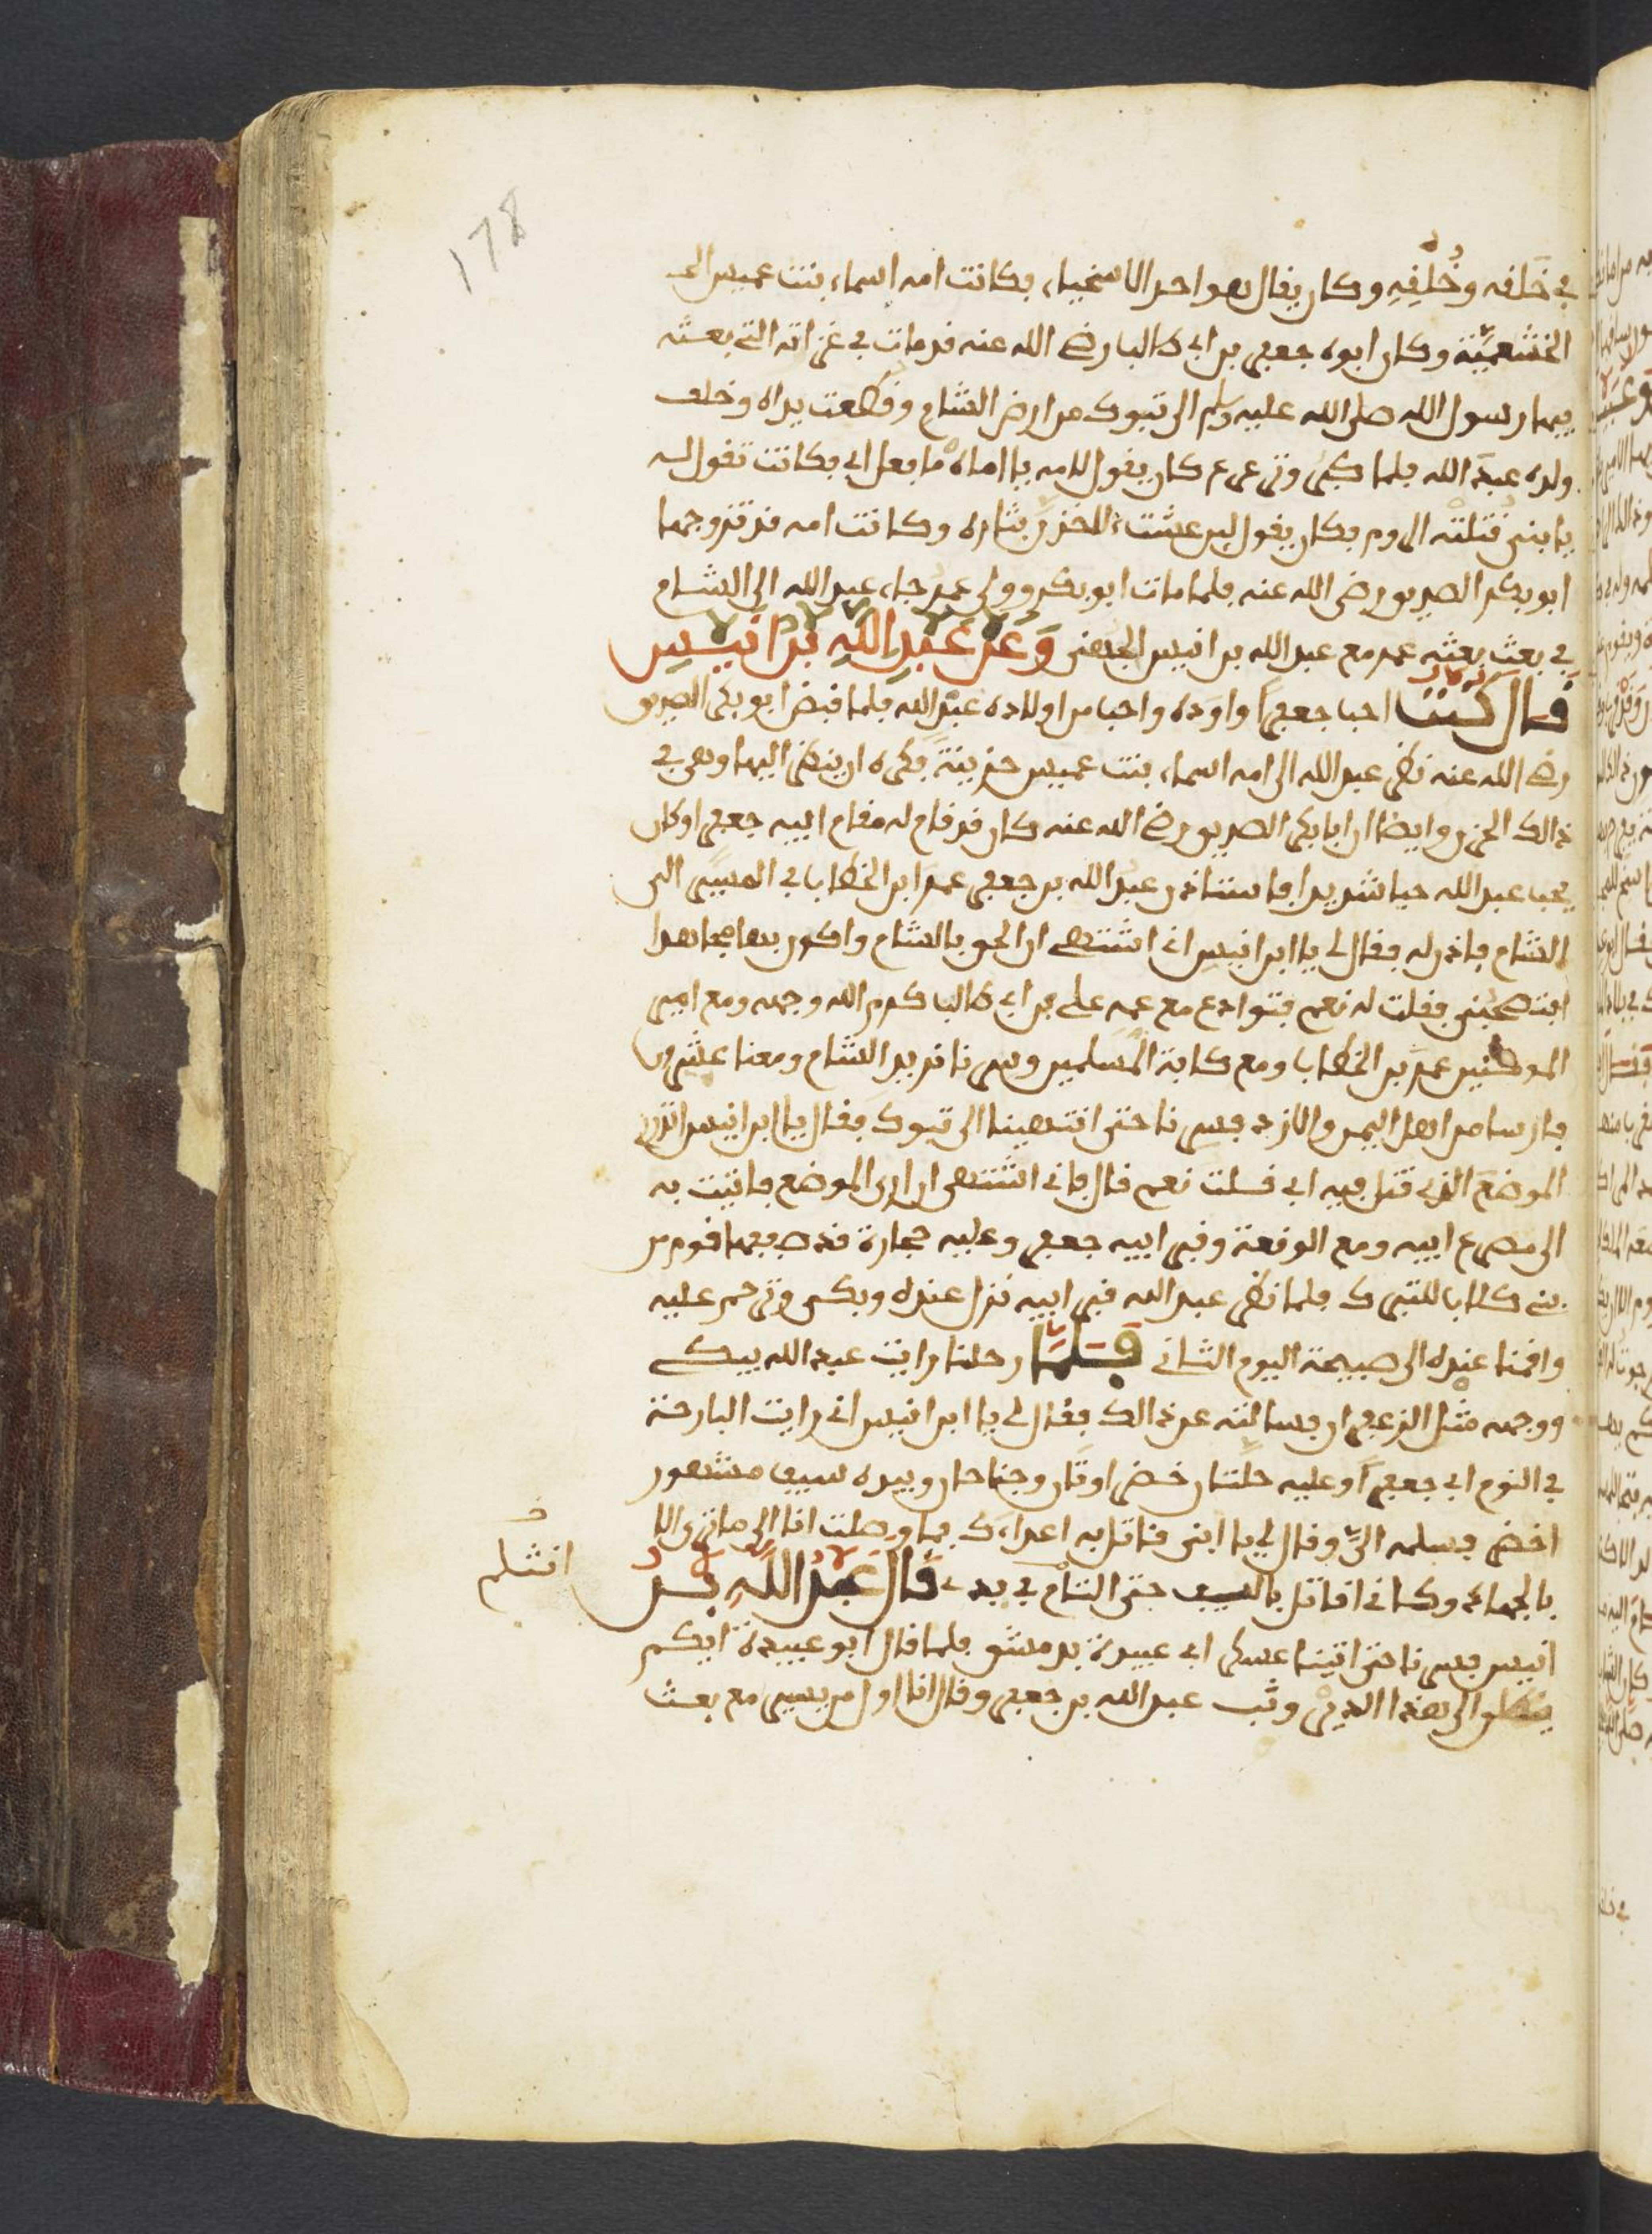 178
في خَلقه وخُلُقِهِ وكان يقال هو احد الاسخياء، فكانت امه اسماء بنت عميس
الخثعميّة وكان ابوه جعفر بن ابي طالب رضي الله عنه قد مات في غزاته التي بعثه
فيها رسول الله صلى الله عليه وسلم الى تبوك من ارض الشام وقطعت يداه وخلف
ولده عبد الله فلما كبر وترعرع كان يقول لامه يا اماه ما فعل ابي فكانت تقول له
يا بني قتلته الروم فكان يقول لين عشت لاخذن بثاره وكانت امه قد تزوجها
ابو بكر الصديق رضي الله عنه فلما مات ابو بكر وولى عمر جاء عبد الله الى الشام
في بعث بعثه عمر مع عبد الله بن انيس الجهني وَعَن عَبدِ اللهِ بن انيس
قال كنت احب جعفرا واوده واحب من اولاده عبد الله فلما قبض ابو بكر الصديق
رضي الله عنه نظر عبد الله الى امه اسماء بنت عميس حزينة فكره ان ينظر اليها وهي في
ذالك الحزن وايضا ان ابا بكر الصديق رضي الله عنه كان قد قام له مقام ابيه جعفر وكان
يحب عبد الله حبا شديدا فاستاذن عبد الله بن جعفر عمر ابن الخطاب في المسير الى
الشام فاذن له فقال لي يا ابن انيس اني اشتهي ان الحق بالشام واكون بها مجاهدا
افتصحبني فقلت له نعم فتوادع مع عمه علي بن ابي طالب كرم الله وجهه ومع امير
المومنين عمر بن الخطاب ومع كافة المسلمين وسرنا نريد الشام ومعنا عشرون
فارسا من اهل اليمن والازد فسرنا حتى انتهينا الى تبوك فقال يا ابن انيس اتدري
الموضع الذي قتل فيه ابي فقلت نعم قال فاني اشتهي ان ارى الموضع فاتيت به
الى مصرع ابيه ومع الوقعة وقبر ابيه جعفر وعليه حجارة قد صففها قوم من
بني كلاب للتبرك فلما نظر عبد الله قبر ابيه نزل عنده وبكى وترحم عليه
واقمنا عنده الى صبيحة اليوم الثاني فلما رحلنا رايت عبد الله يبكي
ووجهه مثل الزعفران فسالته عن ذالك فقال لي يا ابن انيس اني رايت البارحة
في النوم ابي جعفرا وعليه حلتان خضراوتان وجناحان وبيده سيف مشهور
اخضر فسلمه اليّ وقال لي يا ابني قاتل به اعداءك فما وصلت انا الى ما ترى الا
بالجهاد وكاني اقاتل بالسيف حتى انثلم في يدي قال عَبدُ اللهِ بن
انثلم
انيس فسرنا حتى اتينا عسكر ابي عبيدة بدمشق فلما قال ابو عبيدة ايكم
ينطلق الى هذا الدير وثب عبد الله بن جعفر وقال انا اول من يسير مع بعث